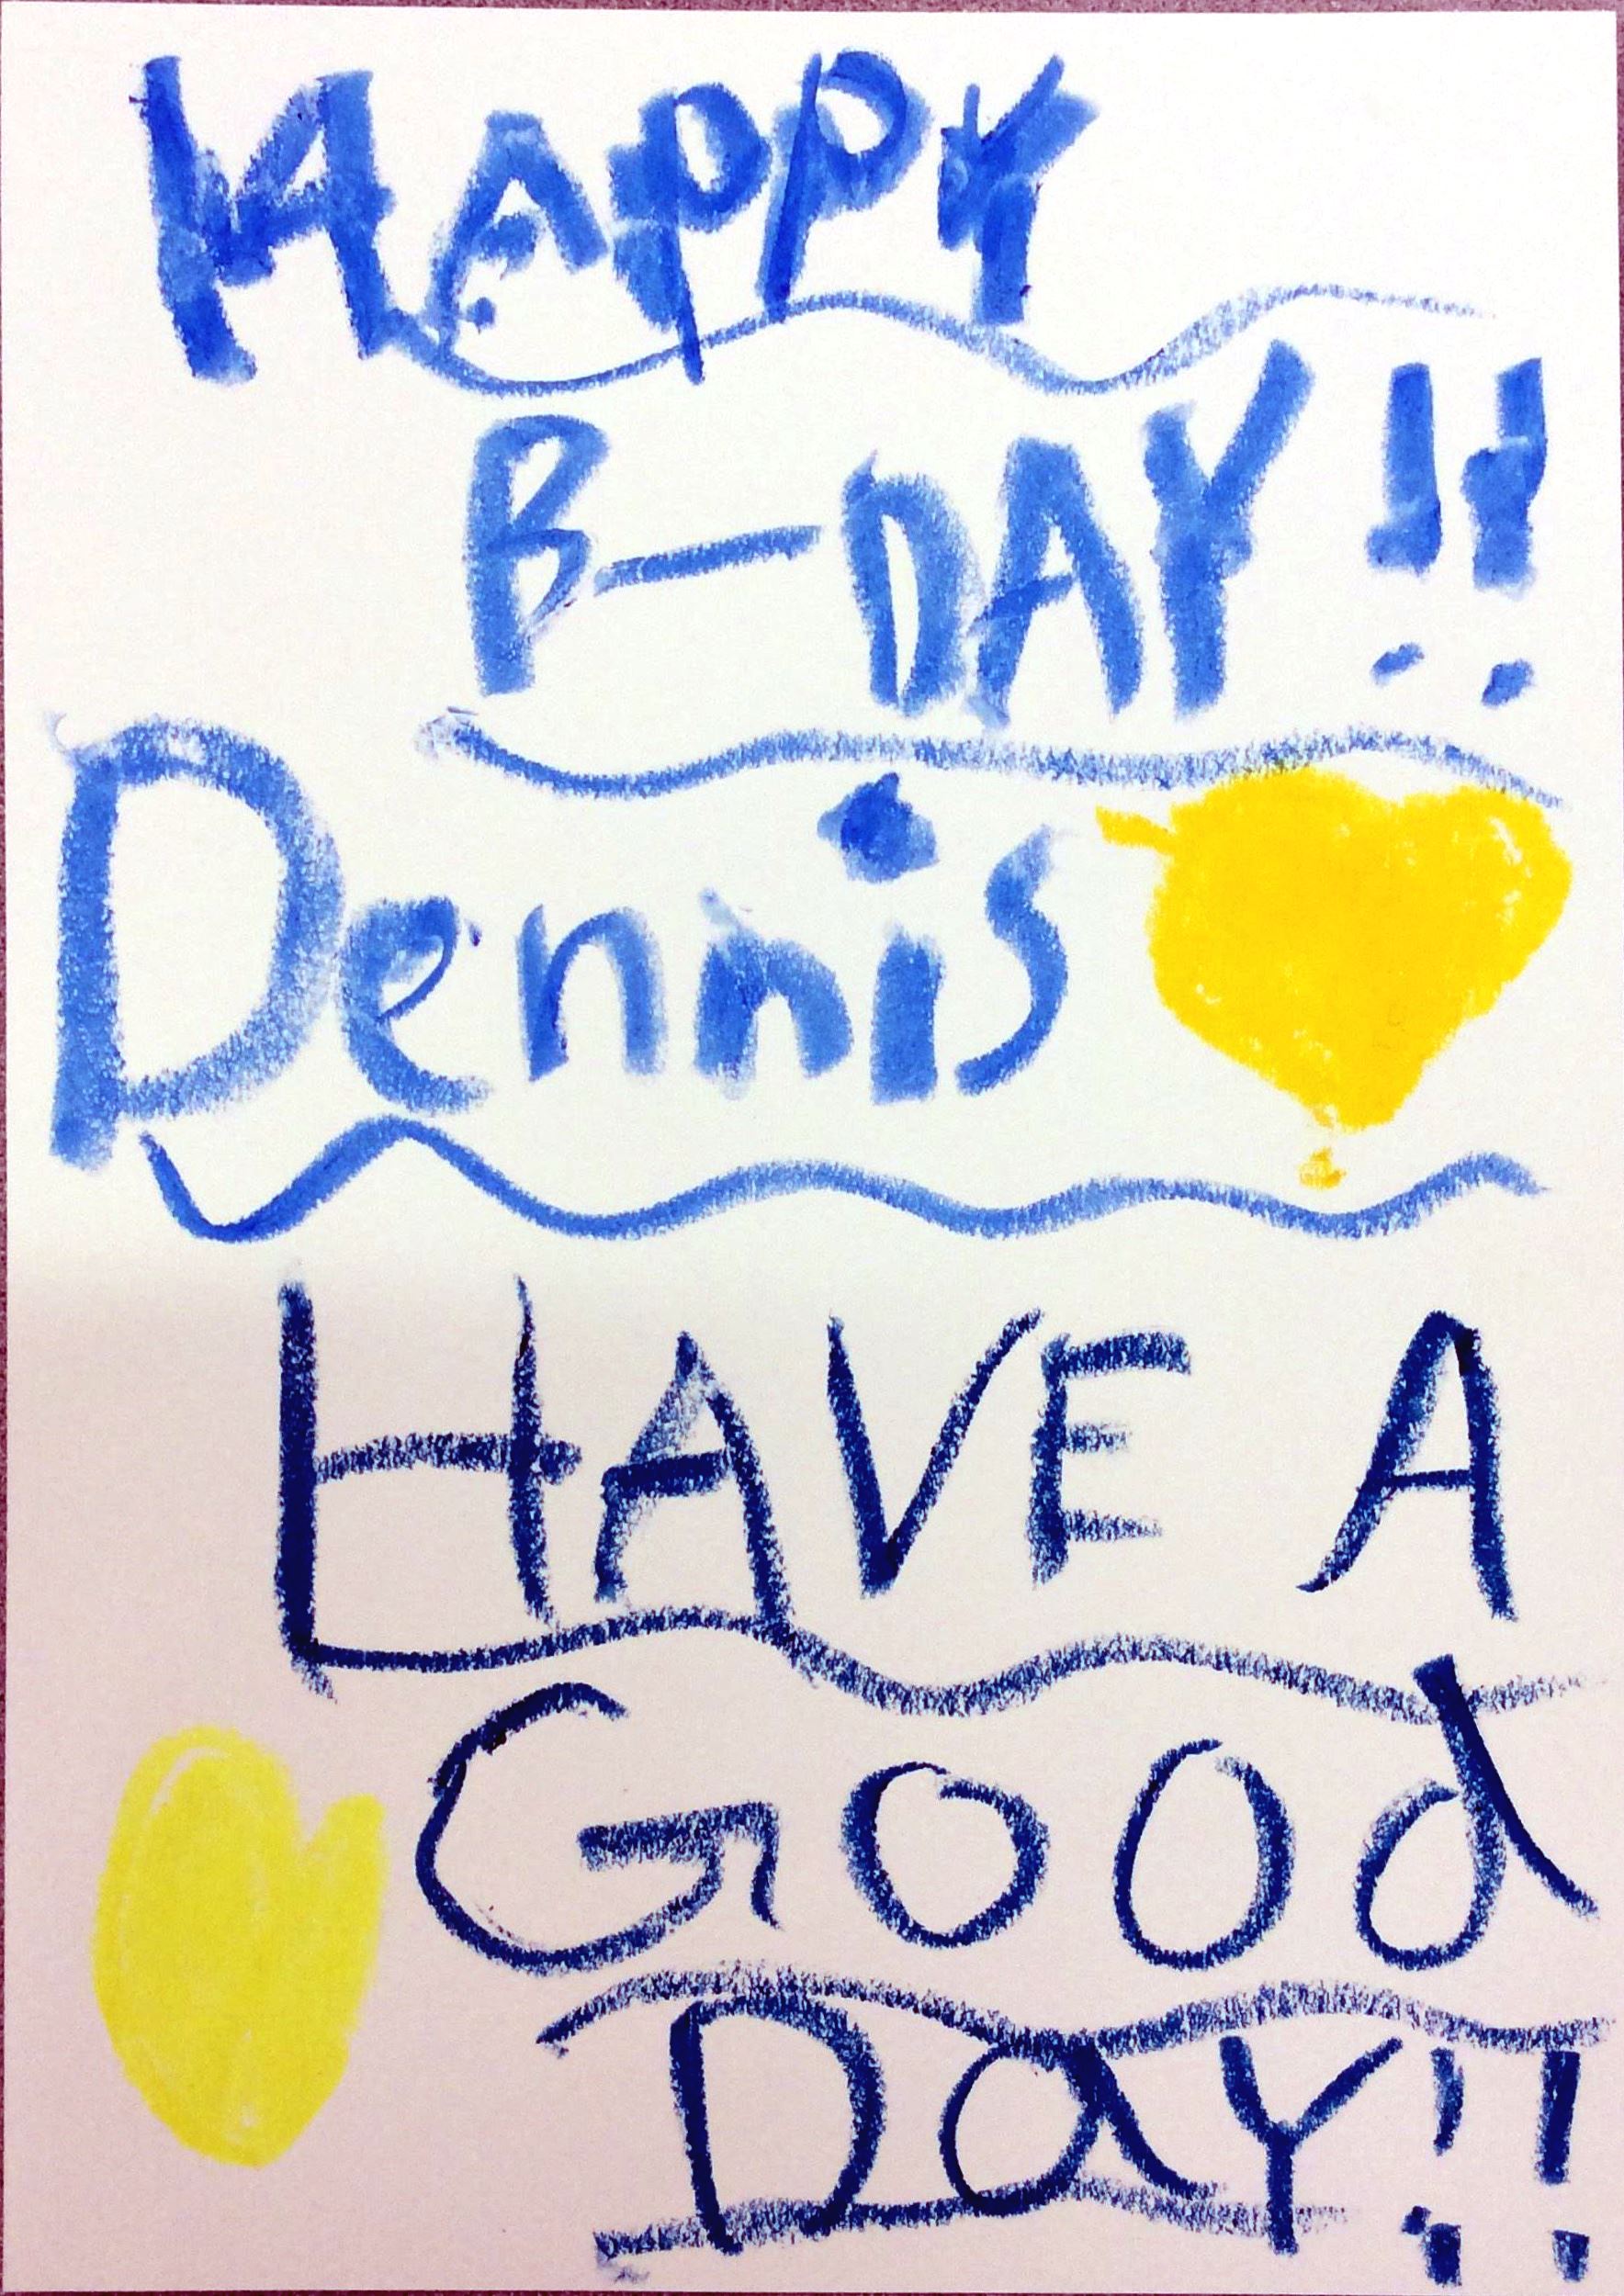 HAPPY
B-DAY!!
Dennis
HAVE A
Good
DaY!!